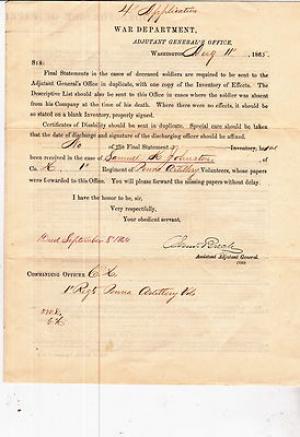 4th Application
WAR DEPARTMENT,
ADJUTANT GENERAL'S OFFICE,
WASHINGTON, Aug 11th 1865.
SIR:
Final Statements in the cases of deceased soldiers are required to be sent to the
Adjutant General's Office in duplicate, with one copy of the Inventory of Effects. The
Descriptive List should also be sent to this Office in cases where the soldier was absent
from his Company at the time of his death. Where there were no effects, it should be
so stated on a blank Inventory, properly signed.
Certificates of Disability should be sent in duplicate. Special care should be taken
that the date of discharge and signature of the discharging officer should be affixed.
No of the Final Statement or Inventory, has
been received in the case of Samuel Johnston
Co. K, 1st Regiment of Penna Artillery Volunteers, whose papers
were forwarded to this Office. You will please forward the missing papers without delay.
I have the honor to be, sir,
Very respectfully,
Your obedient servant,
Died September 8 1864
Assistant Adjutant General.
COMMANDING OFFICER Co. K
1st Regt Penna Artillery Vols